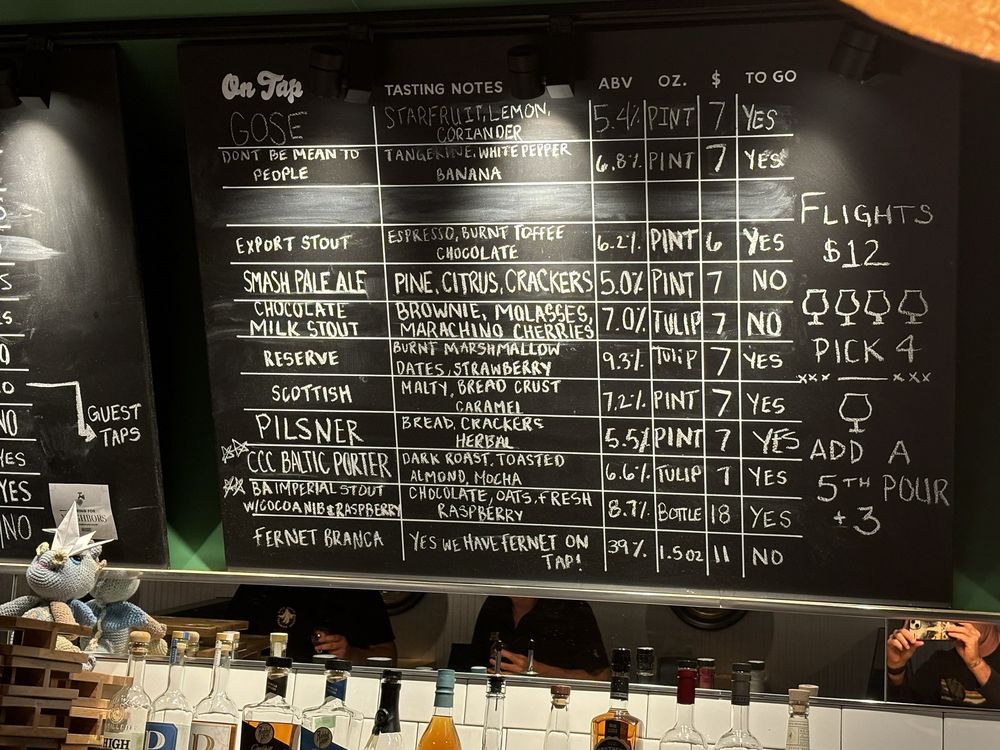 On Tap TASTING NOTES ABV OZ. $ TO GO
GOSE STARFRUIT, LEMON, CORIANDER 5.4% PINT 7 YES
DONT BE MEAN TO PEOPLE TANGERINE, WHITE PEPPER BANANA 6.8% PINT 7 YES
EXPORT STOUT ESPRESSO, BURNT TOFFEE CHOCOLATE 6.2% PINT 6 YES
SMASH PALE ALE PINE, CITRUS, CRACKERS 5.0% PINT 7 NO
CHOCOLATE MILK STOUT BROWNIE, MOLASSES, MARACHINO CHERRIES 7.0% TULIP 7 NO
RESERVE BURNT MARSHMALLOW DATES, STRAWBERRY 9.3% TULIP 7 YES
SCOTTISH MALTY, BREAD CRUST CARAMEL 7.2% PINT 7 YES
PILSNER BREAD, CRACKERS HERBAL 5.5% PINT 7 YES
CCC BALTIC PORTER DARK ROAST, TOASTED ALMOND, MOCHA 6.6% TULIP 7 YES
BA IMPERIAL STOUT W/COCOA NIB & RASPBERRY CHOCOLATE, OATS, FRESH RASPBERRY 8.7% BOTTLE 18 YES
FERNET BRANCA YES WE HAVE FERNET ON TAP! 39% 1.5 OZ 11 NO
FLIGHTS
$12
PICK 4
xxx — xxx
ADD A
5TH POUR
+3
GUEST
TAPS
NO
YES
YES
NO
HIGH